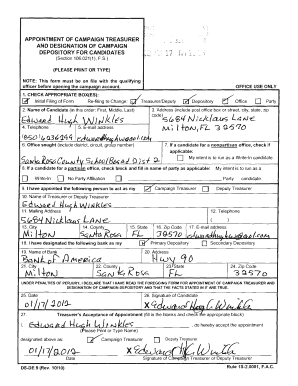 APPOINTMENT OF CAMPAIGN TREASURER
AND DESIGNATION OF CAMPAIGN
DEPOSITORY FOR CANDIDATES
(Section 106.021(1), F.S.)
(PLEASE PRINT OR TYPE)
NOTE: This form must be on file with the qualifying
officer before opening the campaign account.
OFFICE USE ONLY
1. CHECK APPROPRIATE BOX(ES):
Initial Filing of Form Re-filing to Change: Treasurer/Deputy Depository Office Party
2. Name of Candidate (in this order: First, Middle, Last)
Edward Hugh Winkles
3. Address (include post office box or street, city, state, zip code)
5684 Nicklaus Lane
Milton, FL 32570
4. Telephone
5. E-mail address
6. Office sought (include district, circuit, group number)
Santa Rosa County School Board Dist 2
7. If a candidate for a nonpartisan office, check if applicable:
My intent is to run as a Write-In candidate.
8. If a candidate for a partisan office, check block and fill in name of party as applicable: My intent is to run as a
Write-In No Party Affiliation Party candidate.
9. I have appointed the following person to act as my Campaign Treasurer Deputy Treasurer
10. Name of Treasurer or Deputy Treasurer
Edward Hugh Winkles
11. Mailing Address
5684 Nicklaus Lane
12. Telephone
13. City
Milton
14. County
Santa Rosa
15. State
FL
16. Zip Code
32570
17. E-mail address
18. I have designated the following bank as my Primary Depository Secondary Depository
19. Name of Bank
Bank of America
20. Address
Hwy 90
21. City
Milton
22. County
Santa Rosa
23. State
FL
24. Zip Code
32570
UNDER PENALTIES OF PERJURY, I DECLARE THAT I HAVE READ THE FOREGOING FORM FOR APPOINTMENT OF CAMPAIGN TREASURER AND
DESIGNATION OF CAMPAIGN DEPOSITORY AND THAT THE FACTS STATED IN IT ARE TRUE.
25. Date
01/17/2012
26. Signature of Candidate
X Edward Hugh Winkles
27. Treasurer's Acceptance of Appointment (fill in the blanks and check the appropriate block)
I, Edward Hugh Winkles, do hereby accept the appointment
(Please Print or Type Name)
designated above as: Campaign Treasurer Deputy Treasurer.
01/17/2012
Date
X Edward H. Winkles
Signature of Campaign Treasurer or Deputy Treasurer
DS-DE 9 (Rev. 10/10)
Rule 1S-2.0001, F.A.C.